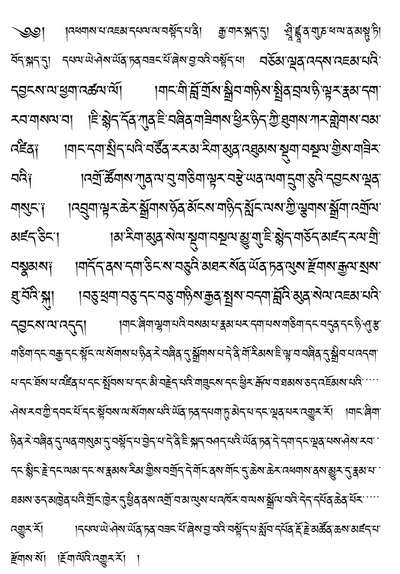 ༄༅། །འཕགས་པ་འཇམ་དཔལ་ལ་བསྟོད་པ་ནི། རྒྱ་གར་སྐད་དུ། ཤྲཱི་ཛྙཱ་ན་གུ་ཎ་ཕ་ལ་ནམསྟུ་ཏི།
བོད་སྐད་དུ། དཔལ་ཡེ་ཤེས་ཡོན་ཏན་བཟང་པོ་ཞེས་བྱ་བའི་བསྟོད་པ། བཅོམ་ལྡན་འདས་འཇམ་པའི་
དབྱངས་ལ་ཕྱག་འཚལ་ལོ། །གང་གི་བློ་གྲོས་སྒྲིབ་གཉིས་སྤྲིན་བྲལ་ཉི་ལྟར་རྣམ་དག་
རབ་གསལ་བ། །ཇི་སྙེད་དོན་ཀུན་ཇི་བཞིན་གཟིགས་ཕྱིར་ཉིད་ཀྱི་ཐུགས་ཀར་གླེགས་བམ་
འཛིན༑ །གང་དག་སྲིད་པའི་བཙོན་རར་མ་རིག་མུན་འཐུམས་སྡུག་བསྔལ་གྱིས་གཟིར་
བའི༑ །འགྲོ་ཚོགས་ཀུན་ལ་བུ་གཅིག་ལྟར་བརྩེ་ཡན་ལག་དྲུག་ཅུའི་དབྱངས་ལྡན་
གསུང་༑ །འབྲུག་ལྟར་ཆེར་སྒྲོགས་ཉོན་མོངས་གཉིད་སློང་ལས་ཀྱི་ལྕགས་སྒྲོག་འགྲོལ་
མཛད་ཅིང་། །མ་རིག་མུན་སེལ་སྡུག་བསྔལ་མྱུ་གུ་ཇི་སྙེད་གཅོད་མཛད་རལ་གྲི་
བསྣམས༑ །གདོད་ནས་དག་ཅིང་ས་བཅུའི་མཐར་སོན་ཡོན་ཏན་ལུས་རྫོགས་རྒྱལ་སྲས་
ཐུ་བོའི་སྐུ། །བཅུ་ཕྲག་བཅུ་དང་བཅུ་གཉིས་རྒྱན་སྤྲས་བདག་བློའི་མུན་སེལ་འཇམ་པའི་
དབྱངས་ལ་འདུད། །གང་ཞིག་ལྷག་པའི་བསམ་པ་རྣམ་པར་དག་པས་གཅིག་དང་བདུན་དང་ཉི་ཤུ་རྩ་
གཅིག་དང་བརྒྱ་དང་སྟོང་ལ་སོགས་པ་ཉིན་རེ་བཞིན་དུ་སྒྲོགས་པ་དེ་ནི་གོ་རིམས་ཇི་ལྟ་བ་བཞིན་དུ་སྒྲིབ་པ་འདག་
པ་དང་ཐོས་པ་འཛིན་པ་དང་སྤོབས་པ་དང་མི་བརྗེད་པའི་གཟུངས་དང་ཕྱིར་རྒོལ་བ་ཐམས་ཅད་འཇོམས་པའི་
ཤེས་རབ་ཀྱི་དབང་པོ་དང་སྟོབས་ལ་སོགས་པའི་ཡོན་ཏན་དཔག་ཏུ་མེད་པ་དང་ལྡན་པར་འགྱུར་རོ། །གང་ཞིག་
ཉིན་རེ་བཞིན་དུ་ལན་གསུམ་དུ་བསྟོད་པ་བྱེད་པ་དེ་ནི་ཇི་སྐད་བཤད་པའི་ཡོན་ཏན་དེ་དག་དང་ལྡན་པས་ཤེས་རབ་
དང་སྙིང་རྗེ་དང་ལམ་དང་ས་རྣམས་རིམ་གྱིས་བགྲོད་དེ་གོང་ནས་གོང་དུ་ཆེས་ཆེར་འཕགས་ནས་མྱུར་དུ་རྣམ་པ་
ཐམས་ཅད་མཁྱེན་པའི་གྲོང་ཁྱེར་དུ་ཕྱིན་ནས་འགྲོ་བ་མ་ལུས་པ་འཁོར་བ་ལས་སྒྲོལ་བའི་དེད་དཔོན་ཆེན་པོར་
འགྱུར་རོ། །དཔལ་ཡེ་ཤེས་ཡོན་ཏན་བཟང་པོ་ཞེས་བྱ་བའི་བསྟོད་པ་སློབ་དཔོན་རྡོ་རྗེ་མཚོན་ཆས་མཛད་པ་
རྫོགས་སོ། །རྔོག་ལོའི་འགྱུར་རོ། །